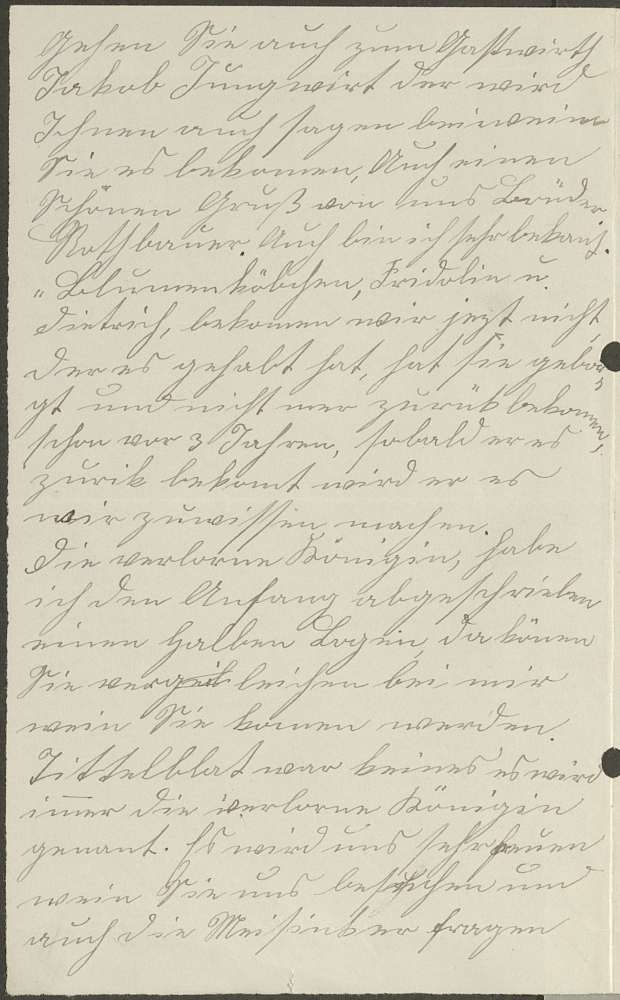 Gehen Sie auch zum Gastwirth
Jakob Jungwirt der wird
Ihnen auch sagen bei wem
Sie es bekomen, Auch einen
Schönen Gruß von uns Brüder
Rothbauer. Auch bin ich sehr bekant.
"Blumenköbchen, Fridolin u.
Dietrich, bekomen wir jezt nicht,
der es gehabt hat, hat sie gebor
gt und nicht mer zurük bekomen,
schon vor 3 Jahren, sobald er es
zurik bekomt wird er es
mir zuwissen machen.
Die verlorne Königin, habe
ich den Anfang abgeschrieben
einen halben Bogen, da könen
Sie vergleichen bei mir
wein Sie komen werden.
Tittelblat war keines es wird
imer die verlorne Königin
genant. Es wird uns sehr freuen
wein Sie uns besuchen und
auch die fragen